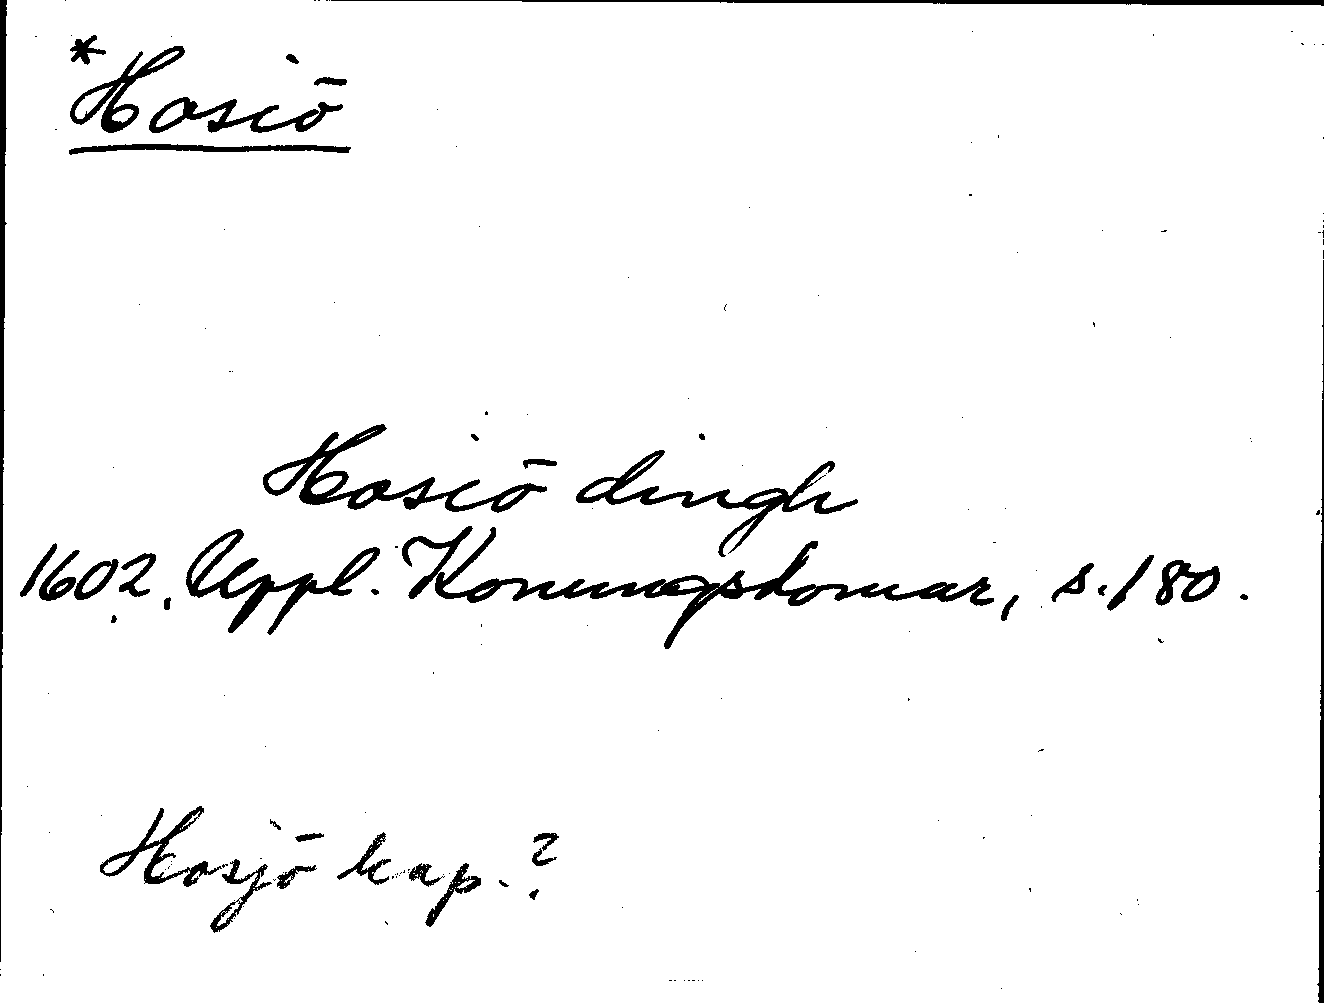 *Hosiö
Hosiö dingh
1602. Uppl. Konungsdomar, s. 180.
Hosjö kap.?